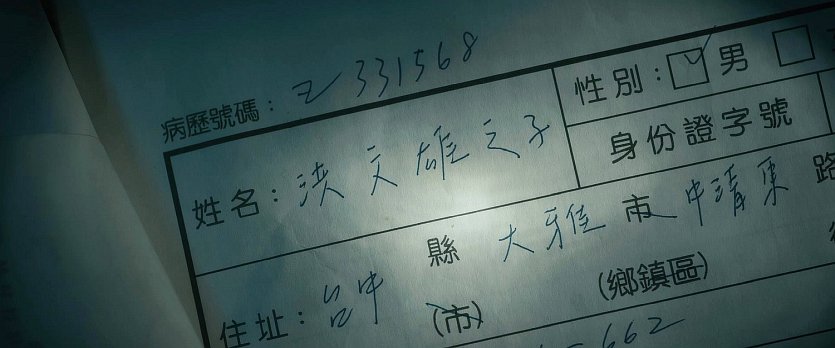 病歷號碼：Z331568
姓名：洪文雄之子 性別：男
身份證字號
住址：台中 縣 大雅 市 中清東 路
(市) (鄉鎮區)
662